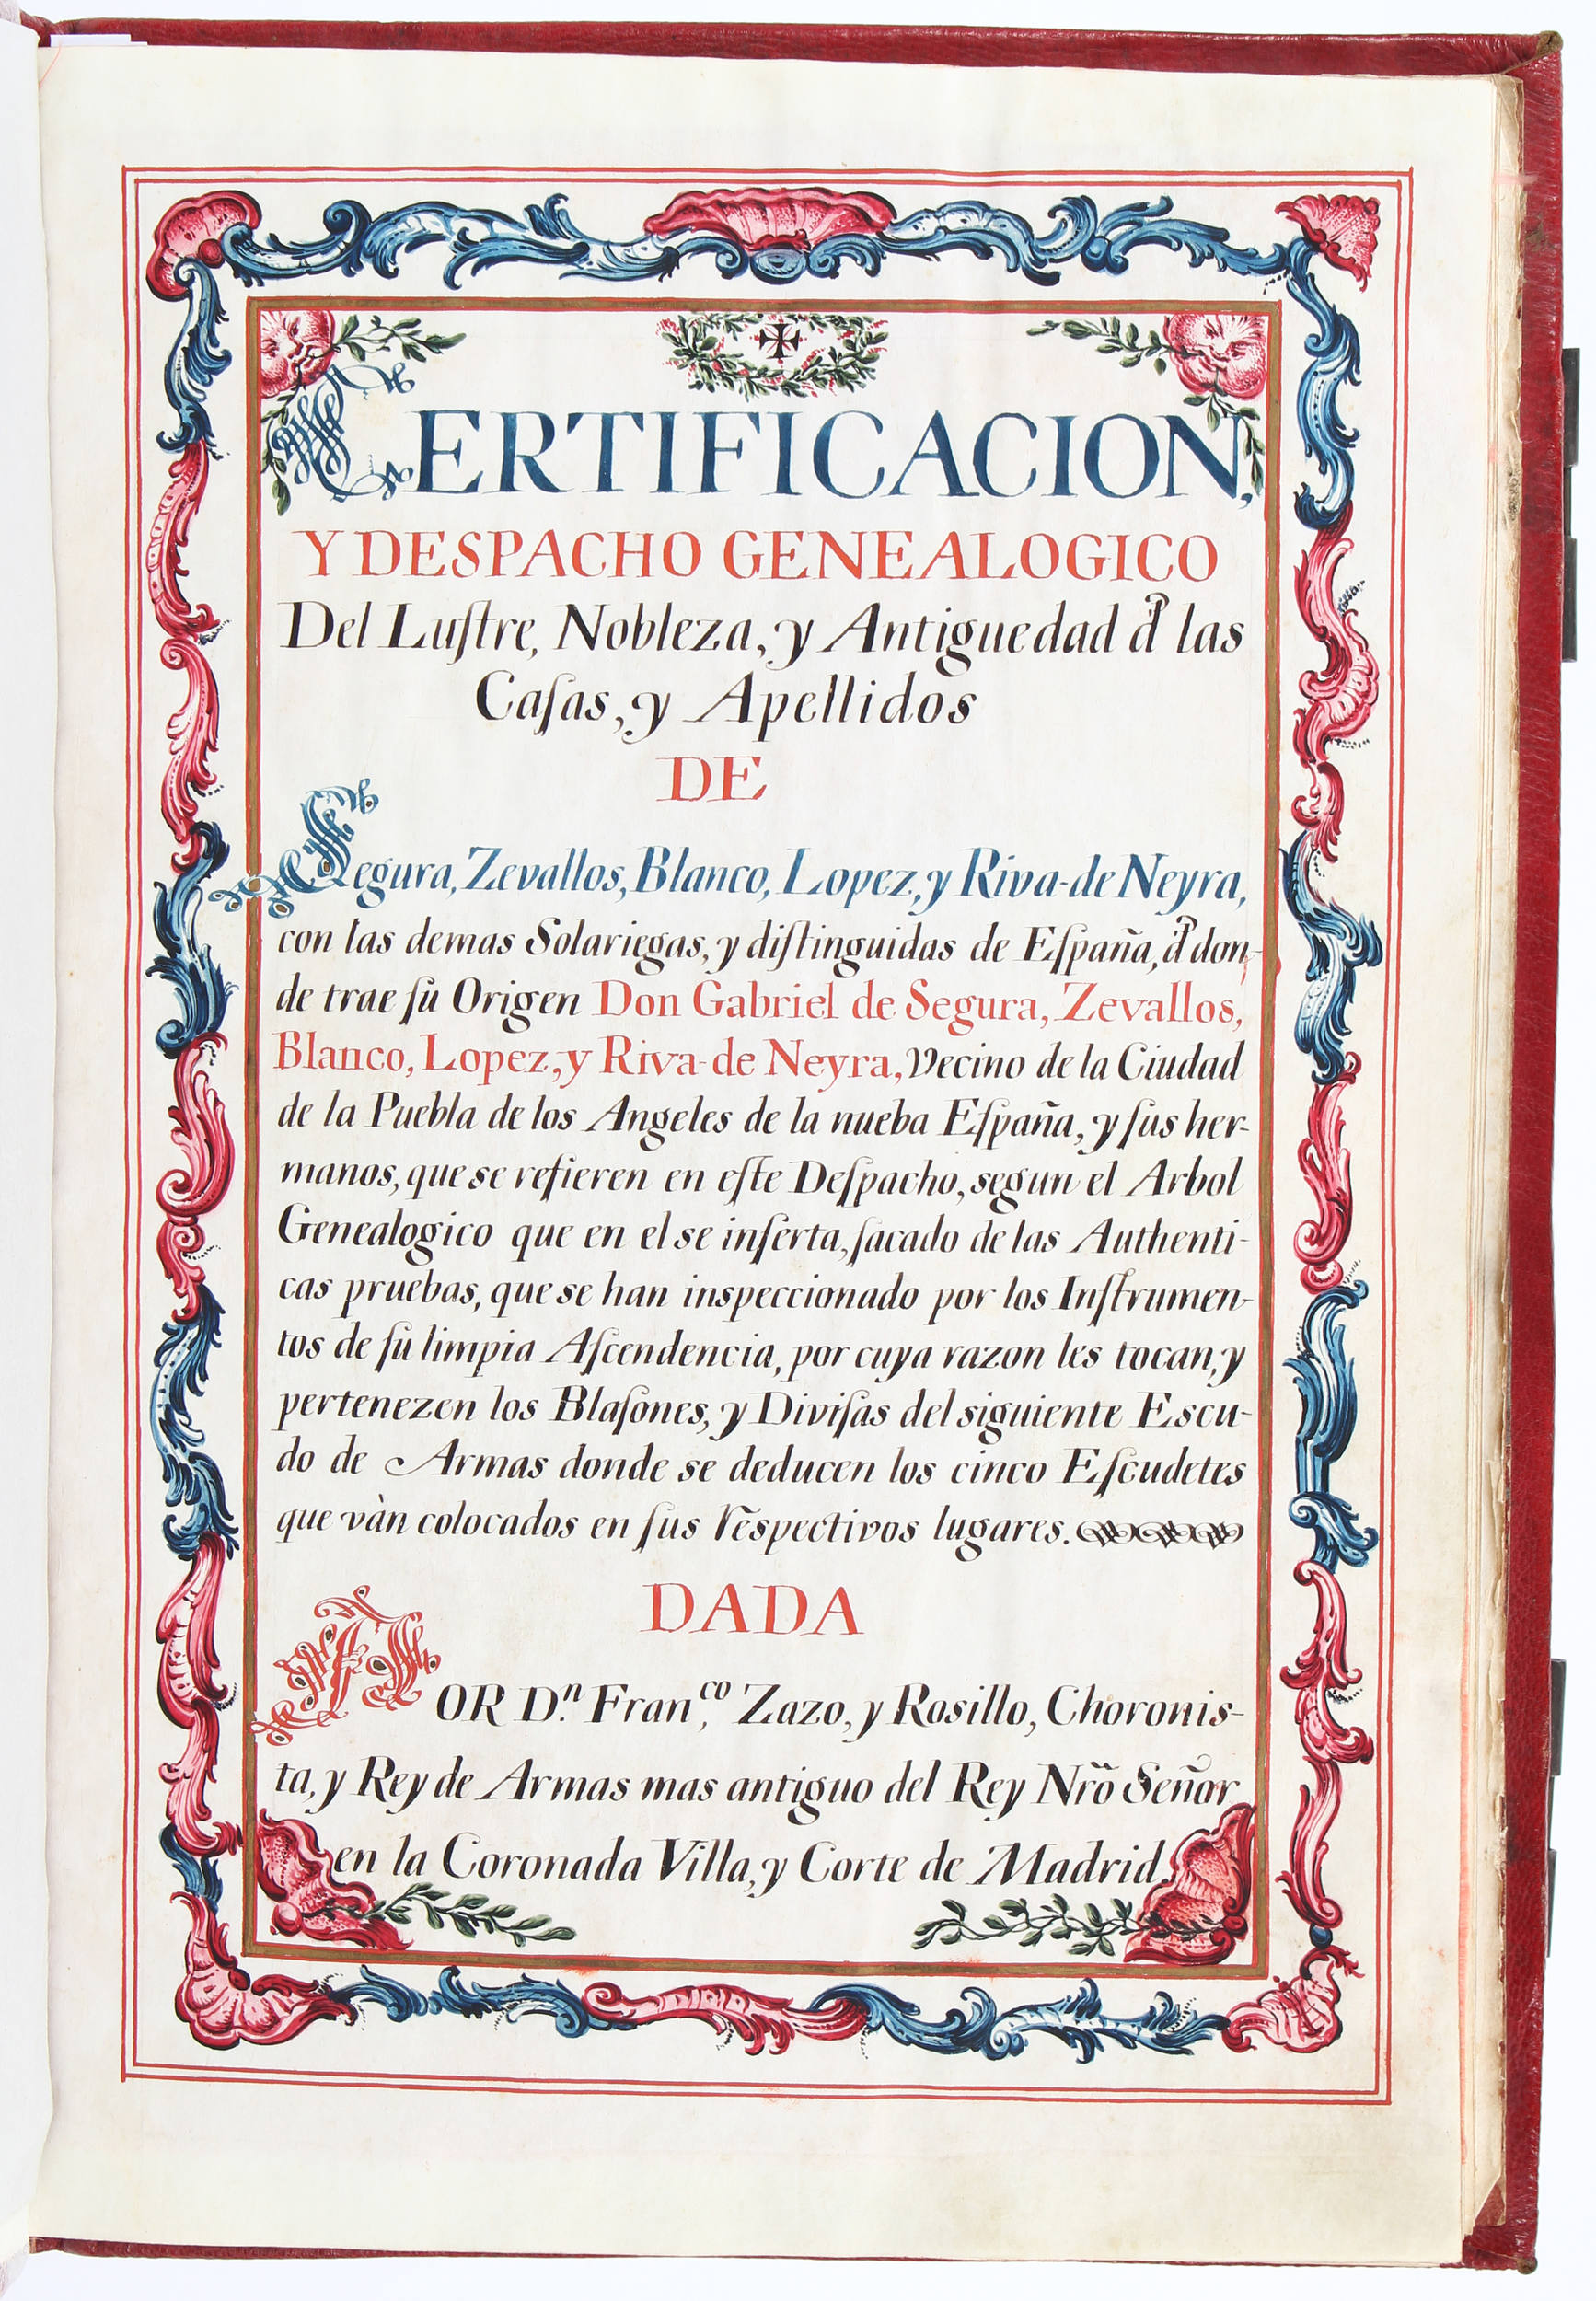 CERTIFICACION,
Y DESPACHO GENEALOGICO
Del Luſtre, Nobleza, y Antiguedad đ las
Caſas, y Apellidos
DE
Segura, Zevallos, Blanco, Lopez, y Riva-de Neyra,
con las demas Solariegas, y diſtinguidas de Eſpaña, đ don-
de trae ſu Origen Don Gabriel de Segura, Zevallos,
Blanco, Lopez, y Riva-de Neyra, vecino de la Ciudad
de la Puebla de los Angeles de la nueba Eſpaña, y ſus her-
manos, que se refieren en eſte Deſpacho, segun el Arbol
Genealogico que en el se inſerta, ſacado de las Authenti-
cas pruebas, que se han inspeccionado por los Inſtrumen-
tos de ſu limpia Aſcendencia, por cuya razon les tocan, y
pertenezen los Blaſones, y Diviſas del siguiente Escu-
do de Armas donde se deducen los cinco Eſcudetes
que vàn colocados en ſus r̃espectivos lugares.
DADA
POR D.ⁿ Fran.ᶜᵒ Zazo, y Rosillo, Choronis-
ta, y Rey de Armas mas antiguo del Rey Nr̃o Señor
en la Coronada Villa, y Corte de Madrid.